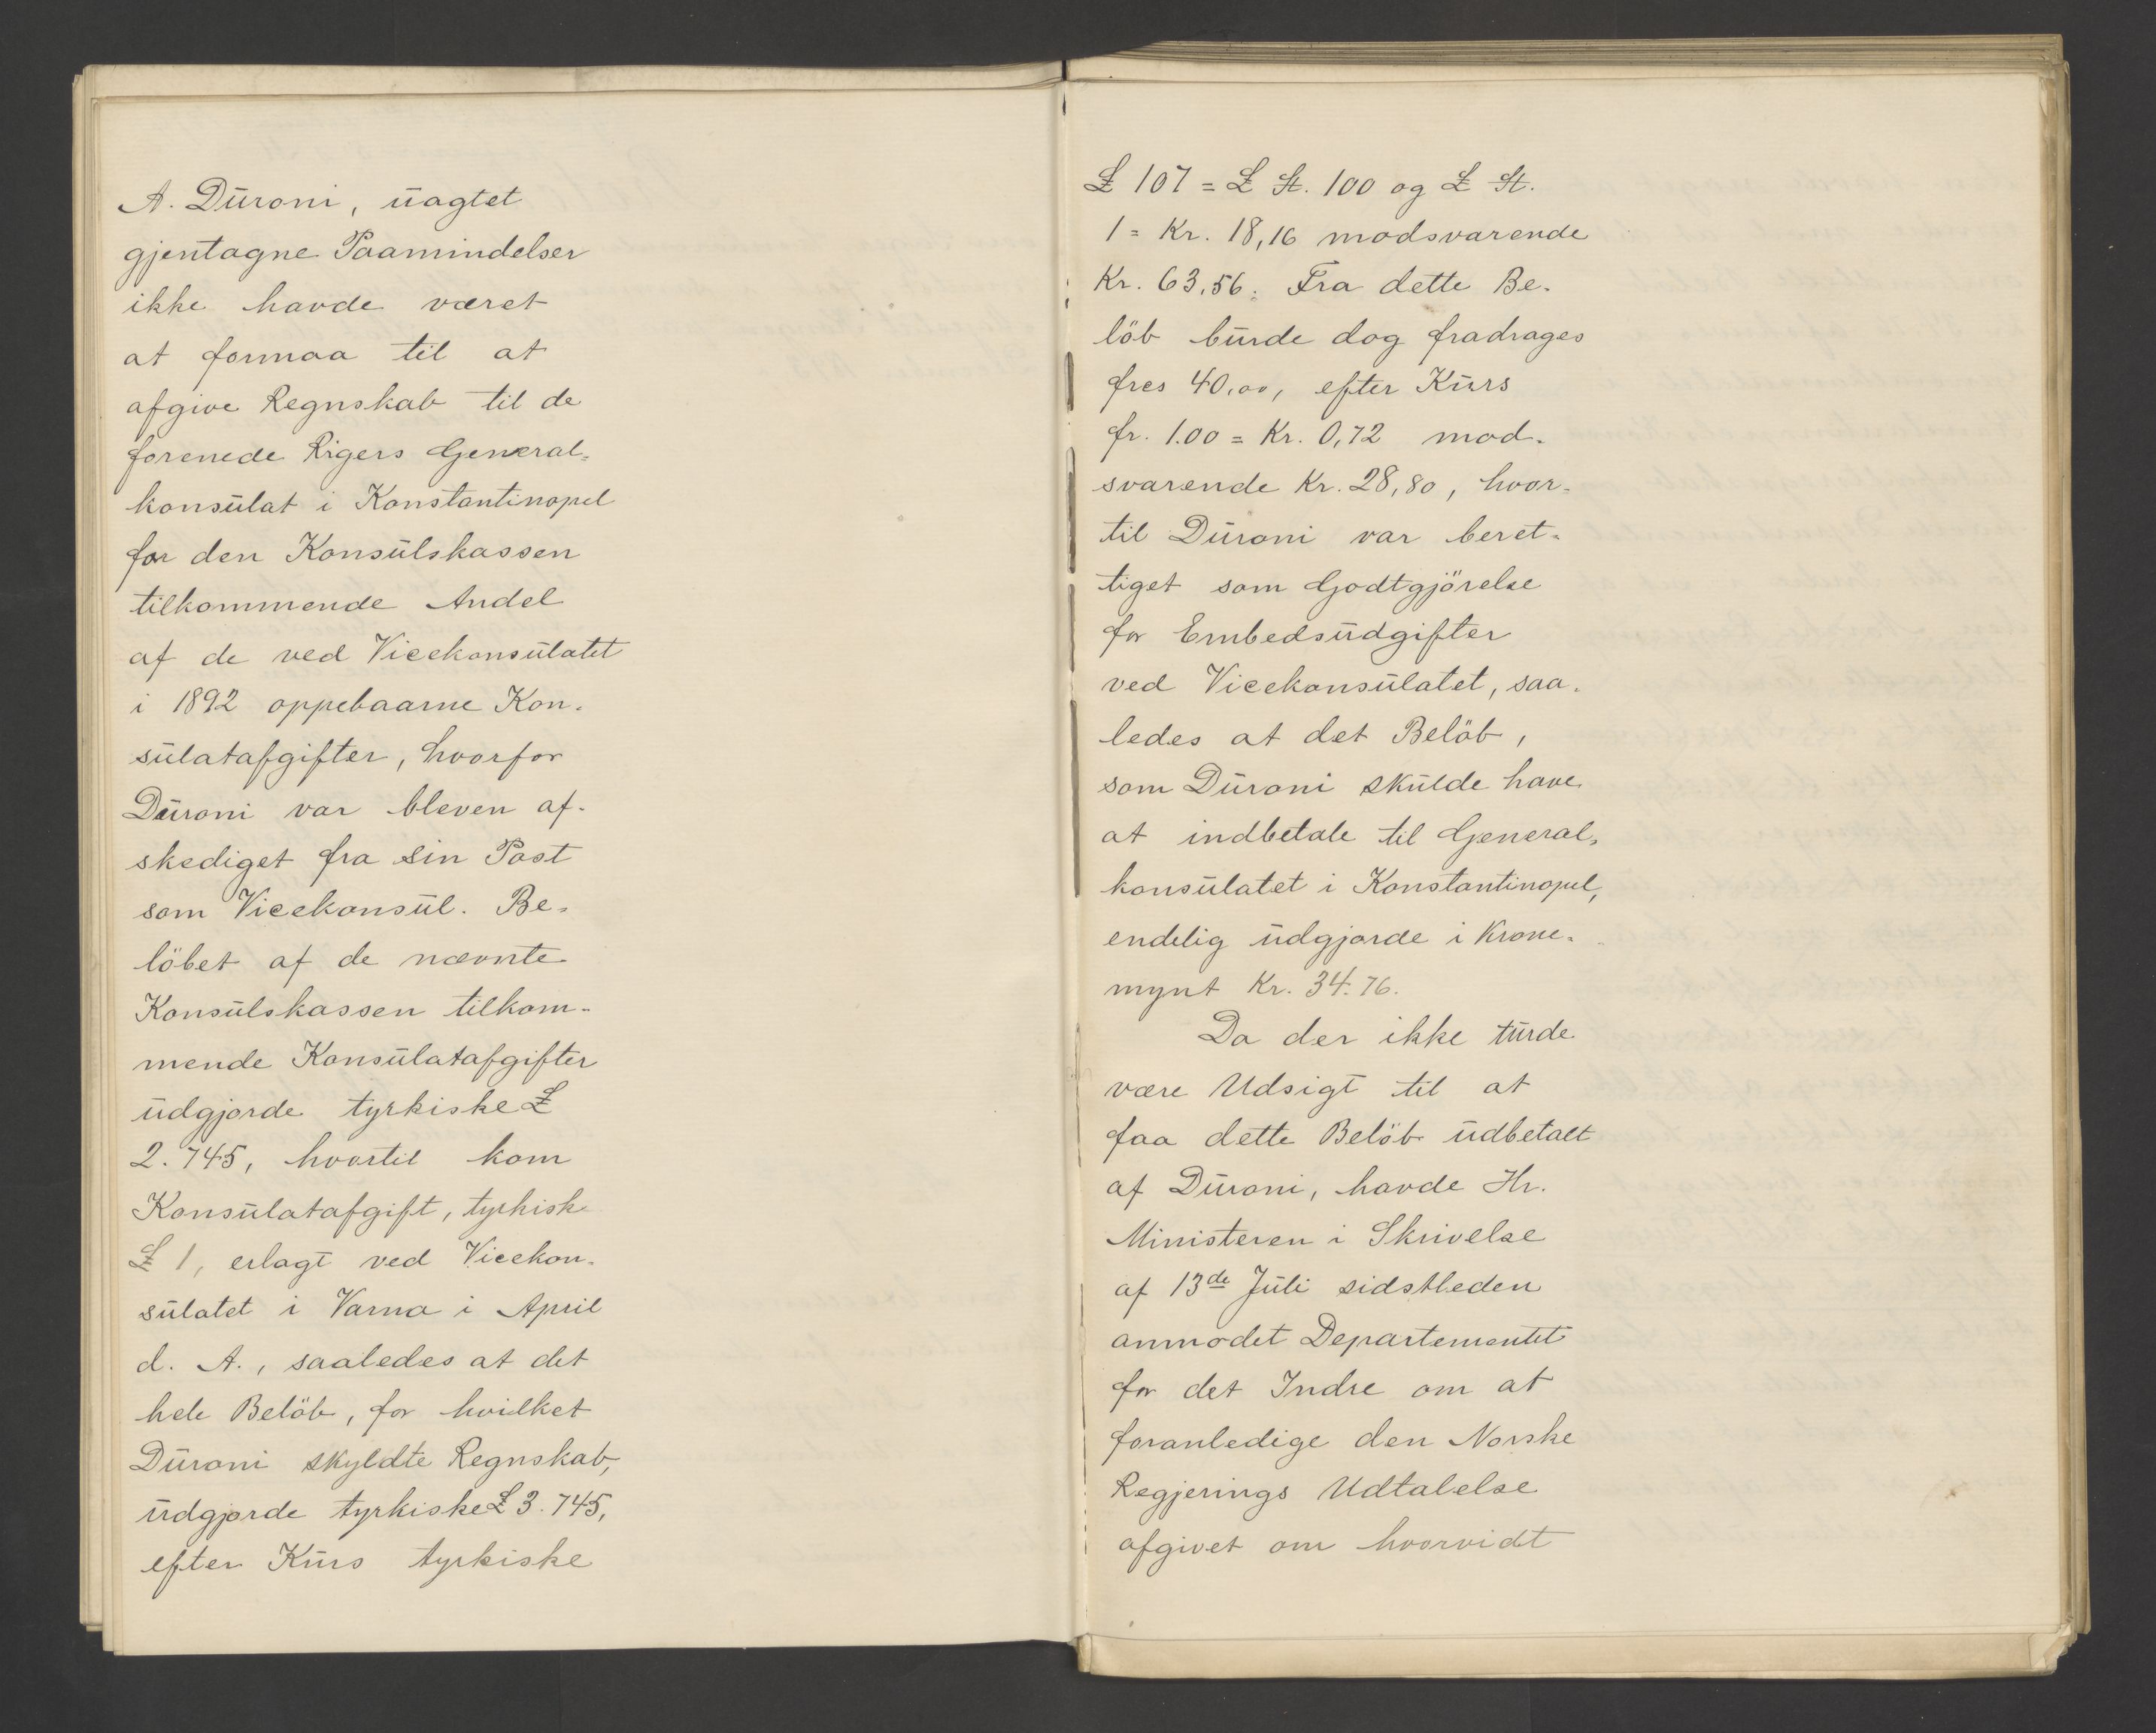 A. Duroni, uagtet
gjentagne Paamindelser
ikke havde været
at formaa til at
afgive Regnskab til de
forenede Rigers General-
konsulat i Konstantinopel
for den Konsulskassen
tilkommende Andel
af de ved Vicekonsulatet
i 1892 oppebaarne Kon-
sulatafgifter, hvorfor
Duroni var bleven af-
skediget fra sin Post
som Vicekonsul. Be-
löbet af de nævnte
Konsulskassen tilkom-
mende Konsulatafgifter
udgjorde tyrkiske £
2.745, hvortil kom
Konsulatafgift, tyrkisk
£ 1, erlagt ved Vicekon-
sulatet i Varna i April
d. A., saaledes at det
hele Belöb, for hvilket
Duroni skyldte Regnskab,
udgjorde tyrkiske £ 3.745,
efter Kurs tyrkiske
£ 107 = £ St. 100 og £ St.
1 = Kr. 18,16 modsvarende
Kr. 63,56. Fra dette Be-
löb burde dog fradrages
frcs 40,00, efter Kurs
fr. 1.00 = Kr. 0,72 mod-
svarende Kr. 28,80, hvor-
til Duroni var beret-
tiget som Godtgjörelse
for Embedsudgifter
ved Vicekonsulatet, saa-
ledes at det Belöb,
som Duroni skulde have
at indbetale til General-
konsulatet i Konstantinopel,
endelig udgjorde i Krone-
mynt Kr. 34.76.
Da der ikke turde
være Udsigt til at
faa dette Belöb udbetalt
af Duroni, havde Hr.
Ministeren i Skrivelse
af 13de Juli sidstleden
anmodet Departementet
for det Indre om at
foranledige den Norske
Regjerings Udtalelse
afgivet om hvorvidt